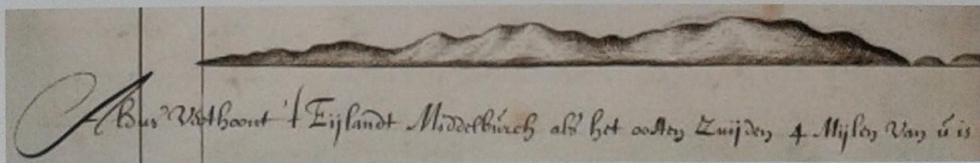 Aldus Verthoont 't Eijlandt Middelburch als het oosten Zuijden 4 Mijlen Van ú is